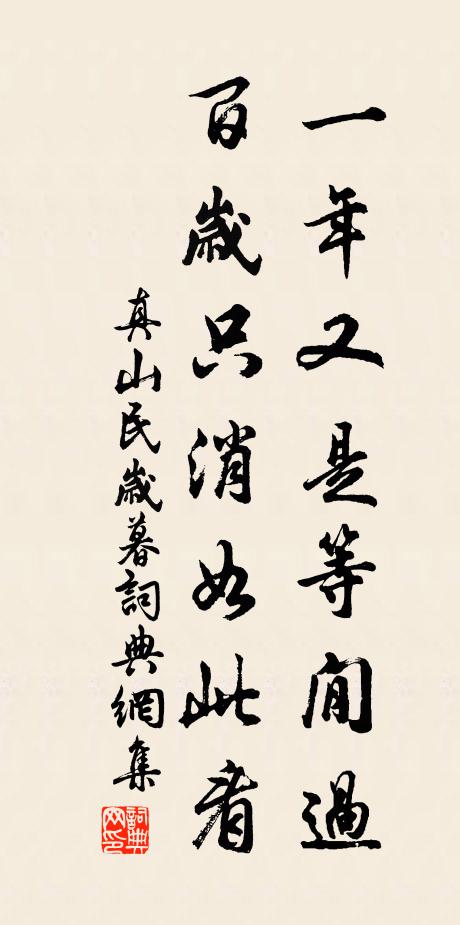 一年又是等閒過
百歲只消如此看
真山民歲暮詞典網集
詞典網印